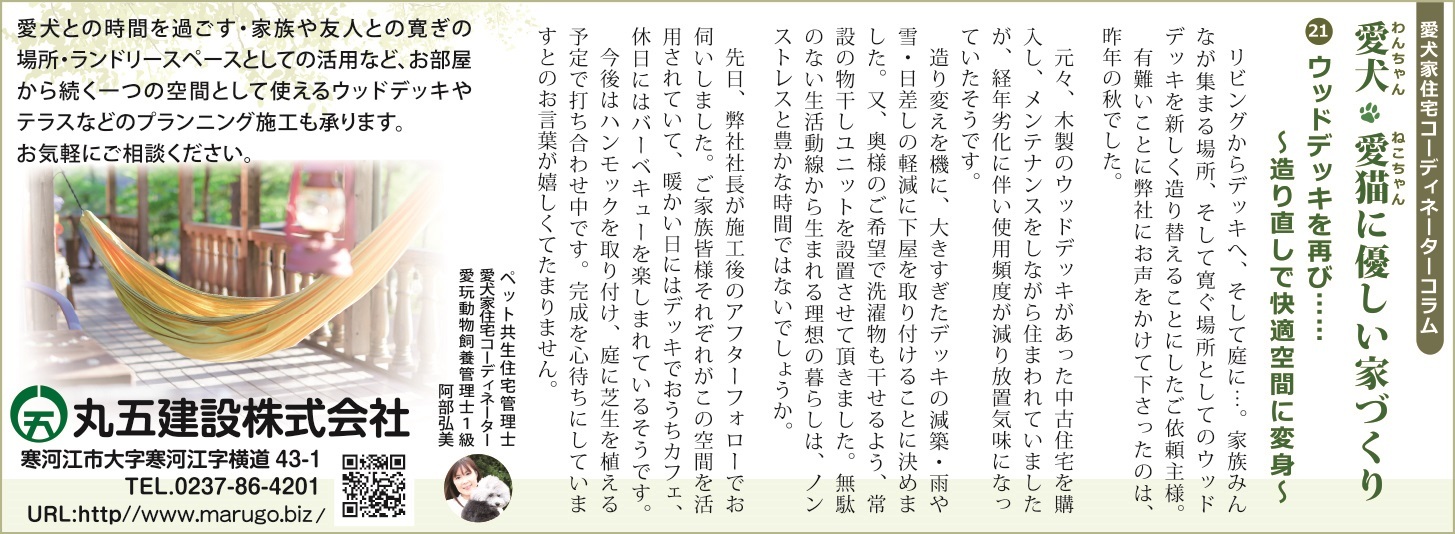 愛犬家住宅コーディネーターコラム
愛犬🐾愛猫に優しい家づくり
わんちゃん
ねこちゃん
21 ウッドデッキを再び……
～造り直しで快適空間に変身～
リビングからデッキへ、そして庭に…。家族みん
なが集まる場所、そして寛ぐ場所としてのウッド
デッキを新しく造り替えることにしたご依頼主様。
有難いことに弊社にお声をかけて下さったのは、
昨年の秋でした。
元々、木製のウッドデッキがあった中古住宅を購
入し、メンテナンスをしながら住まわれていました
が、経年劣化に伴い使用頻度が減り放置気味になっ
ていたそうです。
造り変えを機に、大きすぎたデッキの減築・雨や
雪・日差しの軽減に下屋を取り付けることに決めま
した。又、奥様のご希望で洗濯物も干せるよう、常
設の物干しユニットを設置させて頂きました。無駄
のない生活動線から生まれる理想の暮らしは、ノン
ストレスと豊かな時間ではないでしょうか。
先日、弊社社長が施工後のアフターフォローでお
伺いしました。ご家族皆様それぞれがこの空間を活
用されていて、暖かい日にはデッキでおうちカフェ、
休日にはバーベキューを楽しまれているそうです。
今後はハンモックを取り付け、庭に芝生を植える
予定で打ち合わせ中です。完成を心待ちにしていま
すとのお言葉が嬉しくてたまりません。
ペット共生住宅管理士
愛犬家住宅コーディネーター
愛玩動物飼養管理士1級
阿部弘美
愛犬との時間を過ごす・家族や友人との寛ぎの
場所・ランドリースペースとしての活用など、お部屋
から続く一つの空間として使えるウッドデッキや
テラスなどのプランニング施工も承ります。
お気軽にご相談ください。
丸五建設株式会社
寒河江市大字寒河江字横道43-1
TEL.0237-86-4201
URL:http//www.marugo.biz/